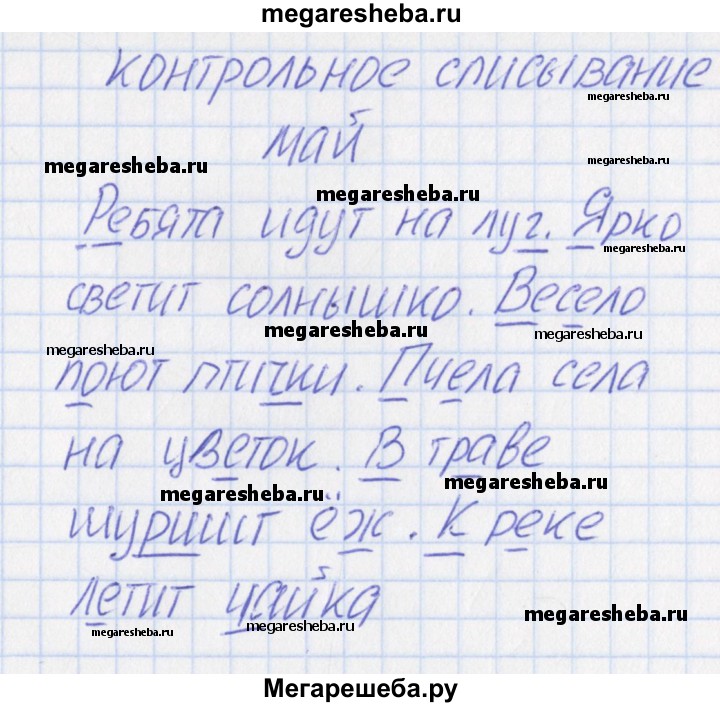 megaresheba.ru
контрольное списывание
megaresheba.ru
май
megaresheba.ru
megaresheba.ru
megaresheba.ru
Ребята идут на луг. Ярко
megaresheba.ru
светит солнышко. Весело
megaresheba.ru
megaresheba.ru
megaresheba.ru
поют птички. Пчела села
на цветок. В траве
megaresheba.ru
megaresheba.ru
шуршит ёж. К реке
летит чайка
megaresheba.ru
megaresheba.ru
megaresheba.ru
Мегарешеба.ру